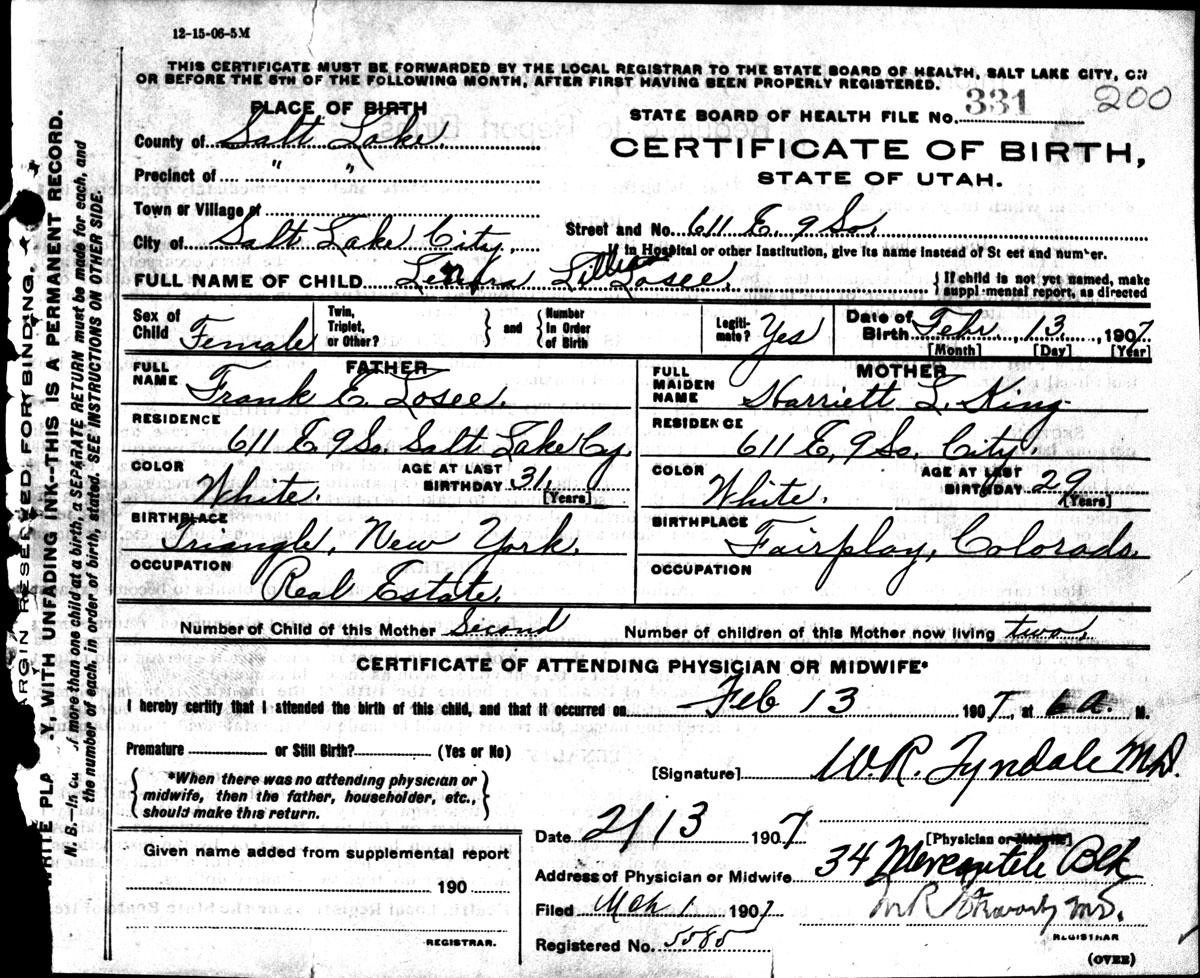 12-15-06-5M
THIS CERTIFICATE MUST BE FORWARDED BY THE LOCAL REGISTRAR TO THE STATE BOARD OF HEALTH, SALT LAKE CITY, ON
OR BEFORE THE 5TH OF THE FOLLOWING MONTH, AFTER FIRST HAVING BEEN PROPERLY REGISTERED.
200
PLACE OF BIRTH
STATE BOARD OF HEALTH FILE NO. 331
County of Salt Lake.
CERTIFICATE OF BIRTH,
Precinct of " "
STATE OF UTAH.
Town or Village of
Street and No. 611 E. 9 So.
City of Salt Lake City.
If in Hospital or other Institution, give its name instead of St eet and number.
FULL NAME OF CHILD Losee. { If child is not yet named, make
suppl mental report, as directed
Sex of Child Female
Twin, Triplet, or Other? } and { Number in Order of Birth
Legitimate? Yes
Date of Birth Febr. 13, 1907
[Month] [Day] [Year]
FATHER
FULL NAME Frank E. Losee.
RESIDENCE
611 E 9 So. Salt Lake Cy.
COLOR White. AGE AT LAST BIRTHDAY 31.
[Years]
BIRTHPLACE
Triangle, New York.
OCCUPATION
Real Estate.
MOTHER
FULL MAIDEN NAME Harriett L. King
RESIDENCE
611 E, 9 So. City.
COLOR White. AGE AT LAST BIRTHDAY 29
[Years]
BIRTHPLACE
Fairplay, Colorado.
OCCUPATION
Number of Child of this Mother Second Number of children of this Mother now living two.
CERTIFICATE OF ATTENDING PHYSICIAN OR MIDWIFE*
I hereby certify that I attended the birth of this child, and that it occurred on Feb 13 1907, at 6 a. M.
Premature or Still Birth? (Yes or No)
[Signature] W.R. Tyndale M.D.
{ *When there was no attending physician or
midwife, then the father, householder, etc.,
should make this return. }
Date 2/13 1907
[Physician or Midwife]
Given name added from supplemental report
190
REGISTRAR.
Address of Physician or Midwife 34 Mercantile Blk
Filed Mch 1 1907
M.D.
REGISTRAR
Registered No. 5085
(OVER)
ARGIN RESERVED FOR BINDING.
WRITE PLA Y, WITH UNFADING INK—THIS IS A PERMANENT RECORD.
N. B.—In ca of more than one child at a birth, a SEPARATE RETURN must be made for each, and
the number of each, in order of birth, stated. SEE INSTRUCTIONS ON OTHER SIDE